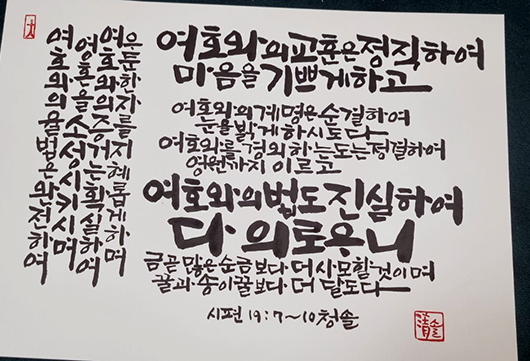 여호와의 율법은 완전하여
영혼을 소성시키며
여호와의 증거는 확실하여
우둔한 자를 지혜롭게 하며
여호와의 교훈은 정직하여
마음을 기쁘게 하고
여호와의 계명은 순결하여
눈을 밝게 하시도다
여호와를 경외하는 도는 정결하여
영원까지 이르고
여호와의 법도 진실하여
다 의로우니
금 곧 많은 순금보다 더 사모할 것이며
꿀과 송이꿀보다 더 달도다
시편 19:7~10 청솔